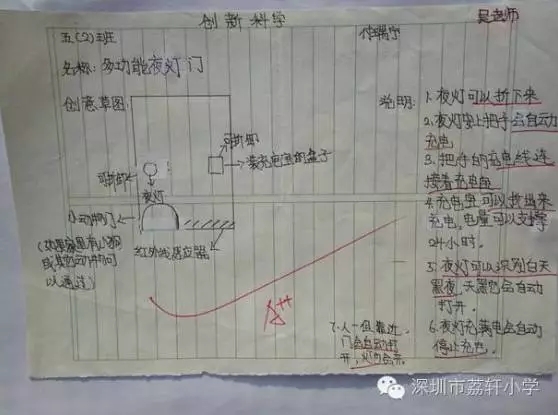 创新科学
吴老师
五(2)班
名称：多功能夜灯门
创意草图：
可拆卸
装充电宝的盒子
可拆卸
夜灯
小动物门
(如果家里有小狗
或其它动物可
以通过)
红外线感应器
说明：
1、夜灯可以拆下来
2、夜灯安上把手会自动
充电
3、把手的充电线连
接着充电宝
4、充电宝可以拔出来
充电，电量可以支撑
24小时。
5、夜灯可以识别白天
黑夜，天黑它会自动
打开。
6、夜灯充满电会自动
停止充电。
7、人一但靠近，
门会自动打
开，灯会亮。
A++
深圳市荔轩小学